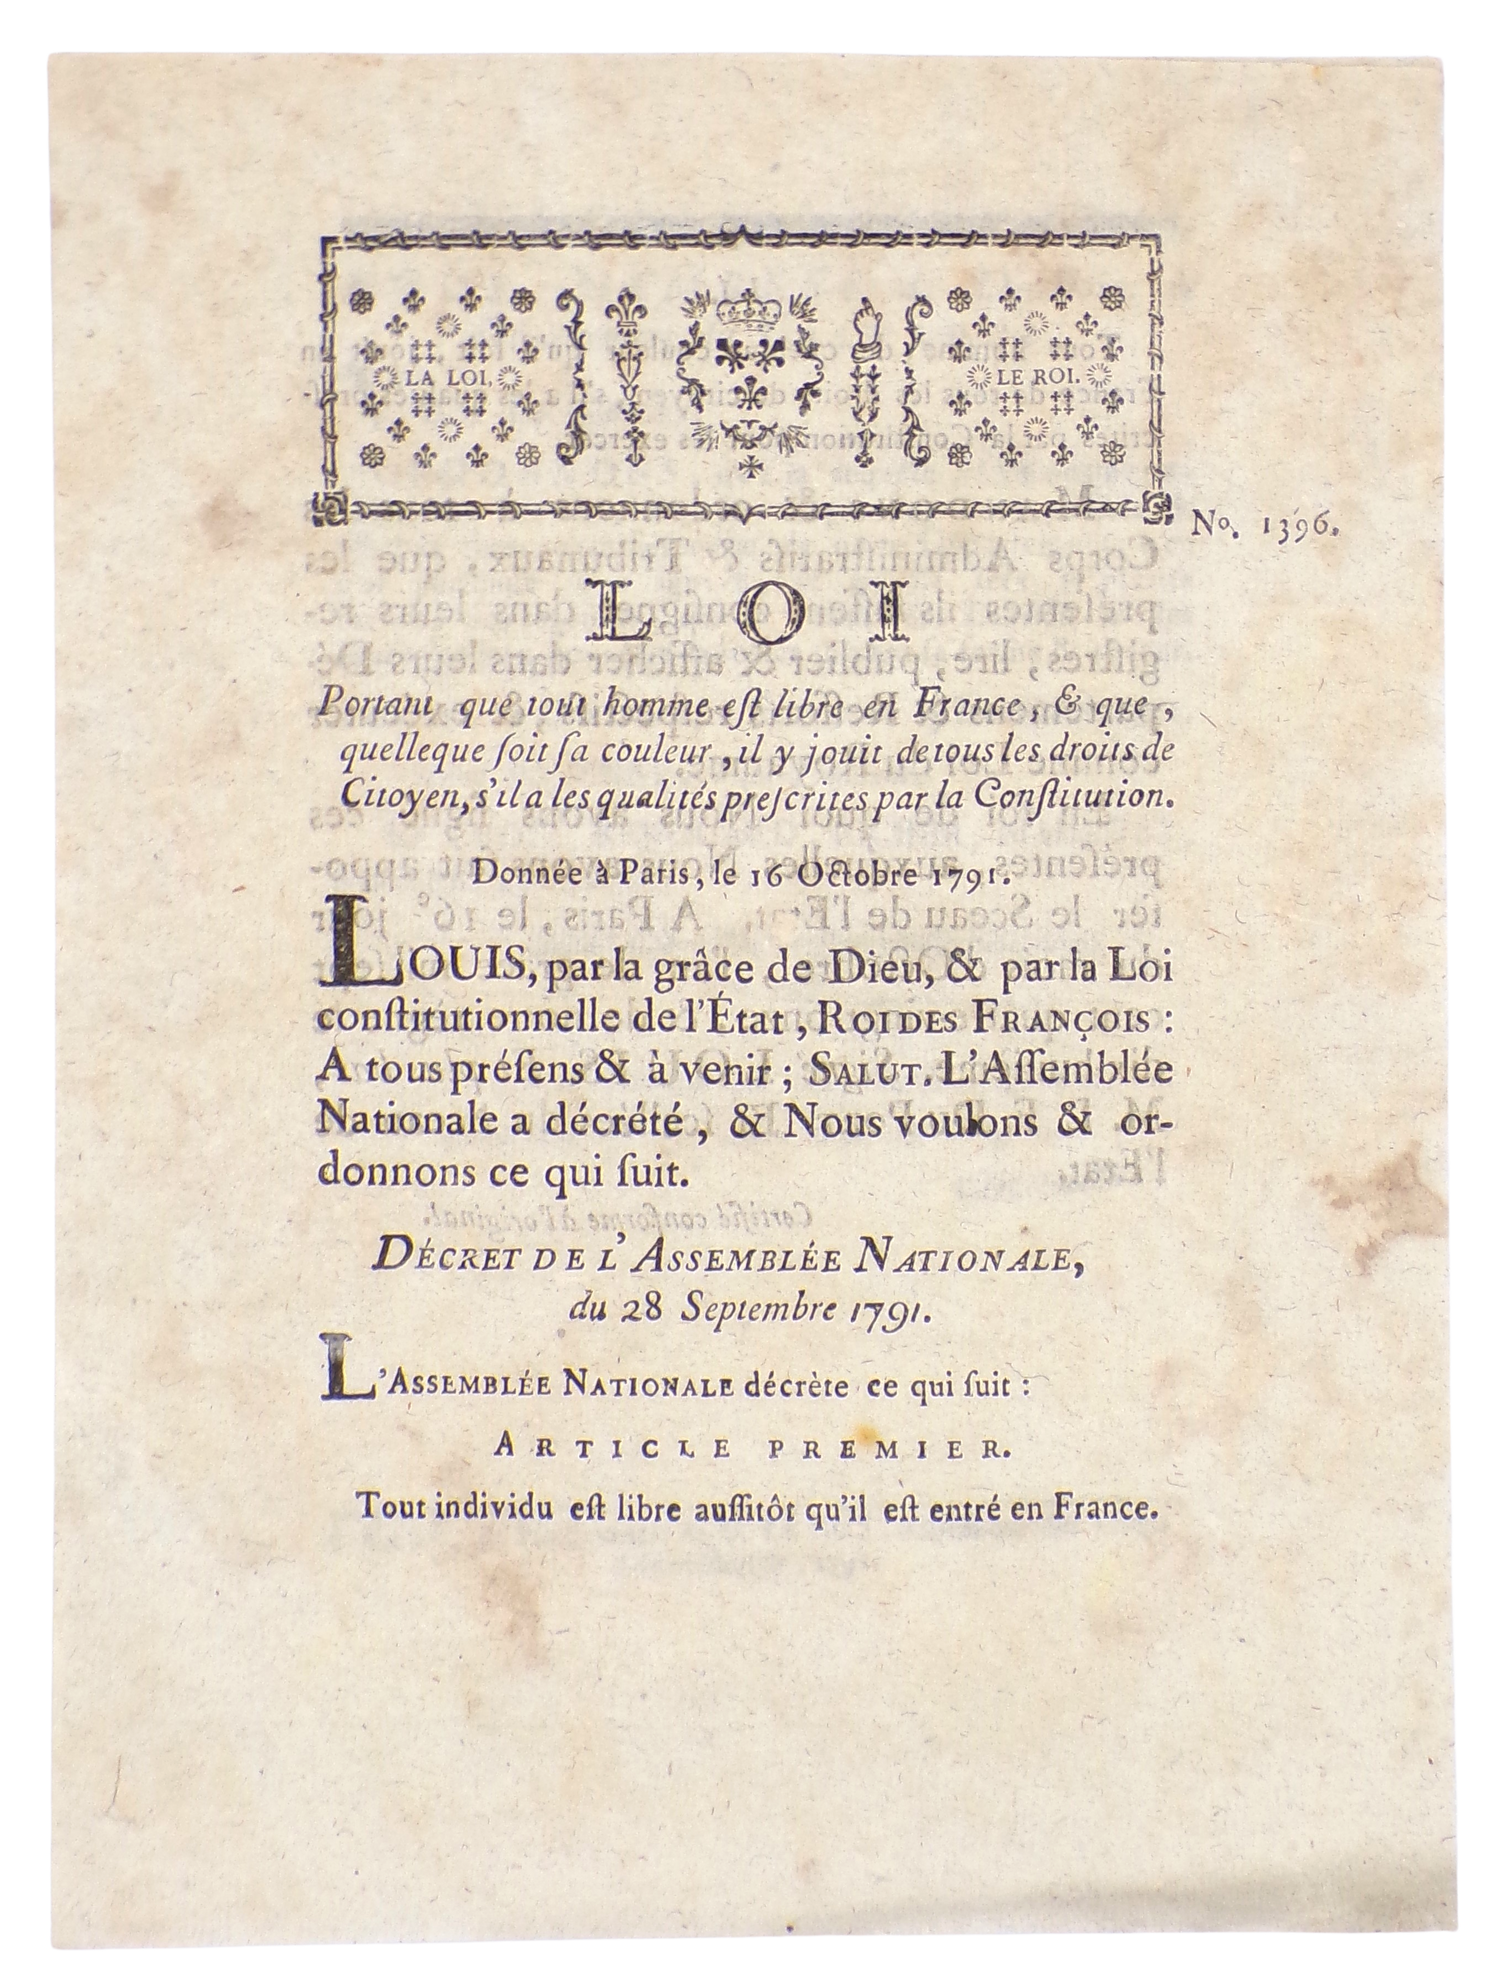 LA LOI,
LE ROI.
No. 1396.
LOI
Portant que tout homme eſt libre en France, & que,
quelleque ſoit ſa couleur, il y jouit de tous les droits de
Citoyen, s'il a les qualités preſcrites par la Conſtitution.
Donnée à Paris, le 16 Octobre 1791.
LOUIS, par la grâce de Dieu, & par la Loi
conſtitutionnelle de l'État, ROI DES FRANÇOIS :
A tous préſens & à venir ; SALUT. L'Aſſemblée
Nationale a décrété, & Nous voulons & or-
donnons ce qui ſuit.
DÉCRET DE L'ASSEMBLÉE NATIONALE,
du 28 Septembre 1791.
L'ASSEMBLÉE NATIONALE décrète ce qui ſuit :
ARTICLE PREMIER.
Tout individu eſt libre auſſitôt qu'il eſt entré en France.